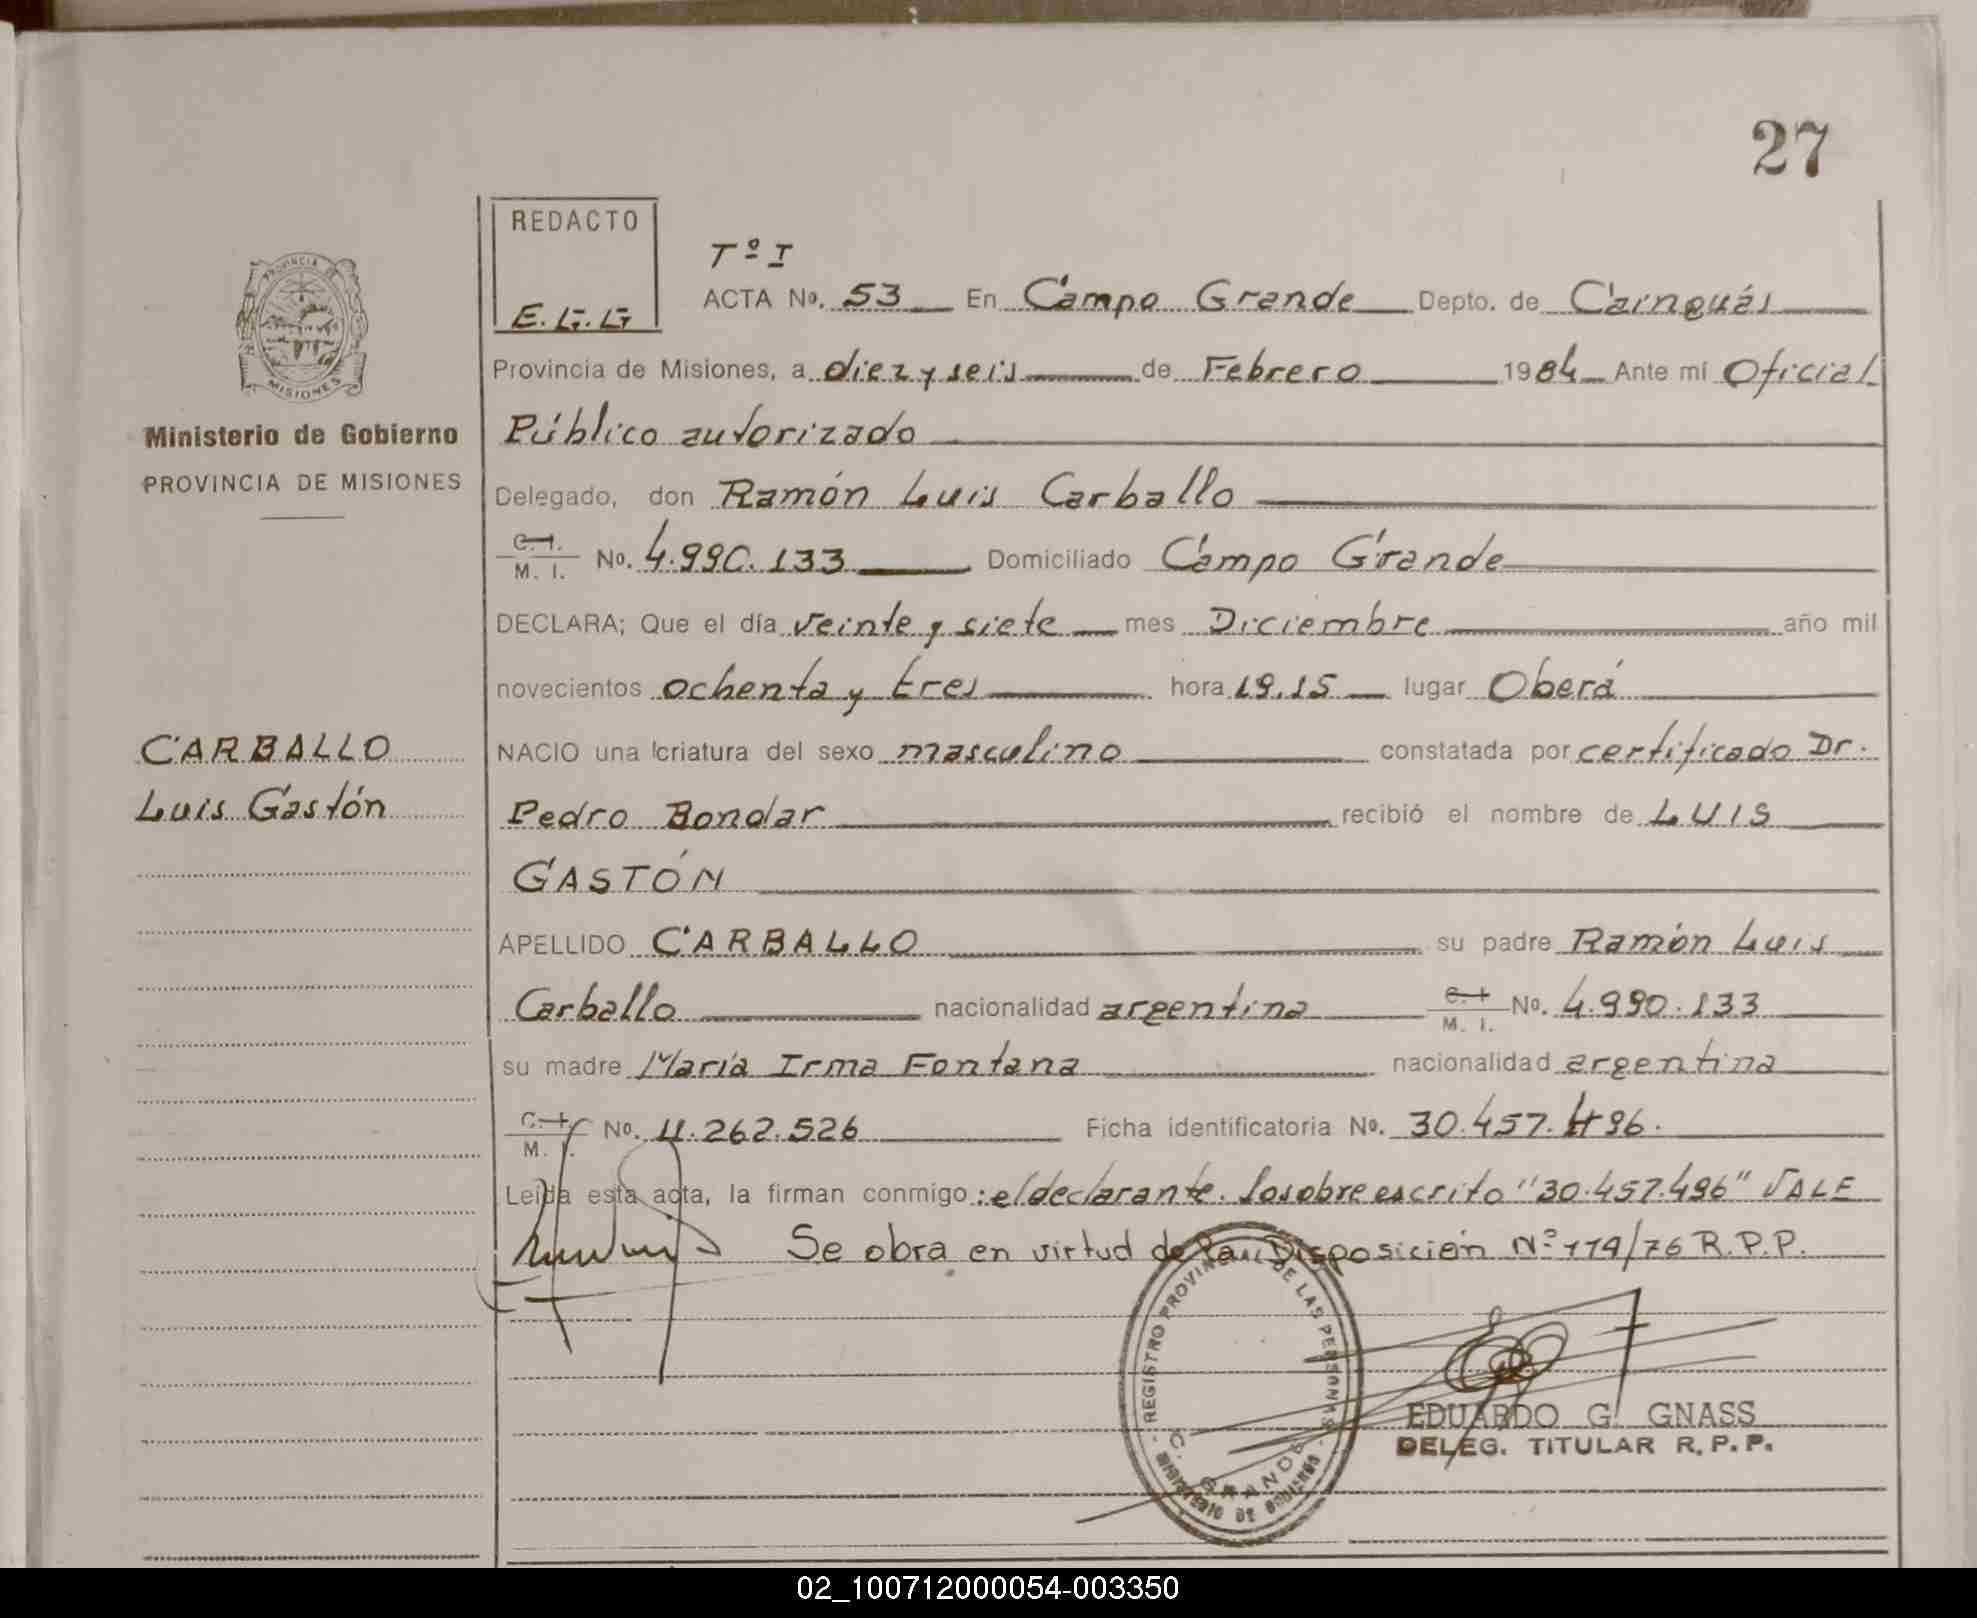 27
REDACTO
E. G. G
Tº I
ACTA No. 53 En Campo Grande Depto. de Cainguás
Provincia de Misiones, a diez y seis de Febrero 1984 Ante mí Oficial
Público autorizado
Delegado, don Ramón Luis Carballo
C. I.
M. I. No. 4.990.133 Domiciliado Campo Grande
DECLARA; Que el día veinte y siete mes Diciembre año mil
novecientos ochenta y tres hora 19.15 lugar Oberá
NACIO una criatura del sexo masculino constatada por certificado Dr.
Pedro Bondar recibió el nombre de LUIS
GASTÓN
APELLIDO CARBALLO su padre Ramón Luis
Carballo nacionalidad argentina C. I. M. I. No. 4.990.133
su madre María Irma Fontana nacionalidad argentina
C. I.
M. I. No. 11.262.526 Ficha identificatoria No. 30.457.496.
Leída esta acta, la firman conmigo: el declarante. Lo sobre escrito "30.457.496" VALE
Se obra en virtud de la Disposición Nº 119/76 R.P.P.
PROVINCIA DE
MISIONES
Ministerio de Gobierno
PROVINCIA DE MISIONES
CARBALLO
Luis Gastón
REGISTRO PROVINCIAL DE LAS PERSONAS
C. GRANDE
MINISTERIO DE GOBIERNO
EDUARDO G. GNASS
DELEG. TITULAR R. P. P.
02_100712000054-003350